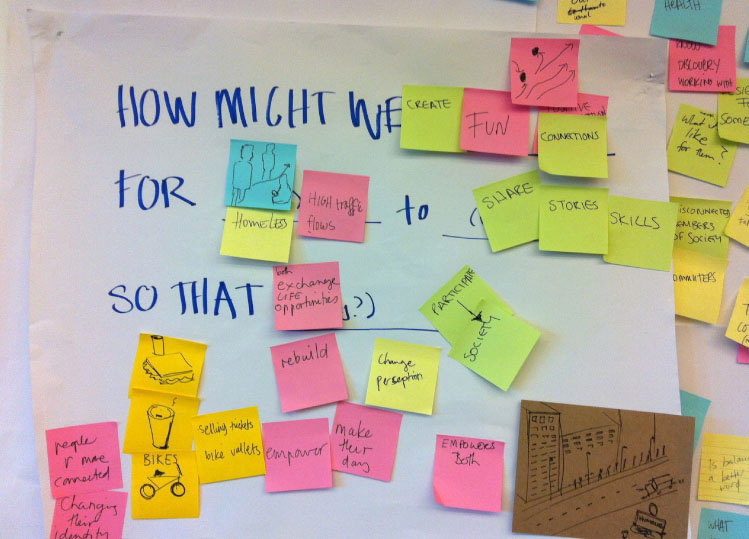 HOW MIGHT WE
CREATE
FUN
CONNECTIONS
FOR
HOMELESS
HIGH traffic
flows
to
SHARE
STORIES
SKILLS
SO THAT
both
exchange
LIFE
opportunities
?)
PARTICIPATE
SOCIETY
rebuild
change
perseption
selling tickets
bike vallets
BIKES
empower
make
their
day
EMPOWERS
Both
people
r more
connected
Changing
their
identity
HEALTH
DISCOVERY
WORKING WITH
What
like
for them?
MEMBERS
OF SOCIETY
Is
a better
word
WHAT